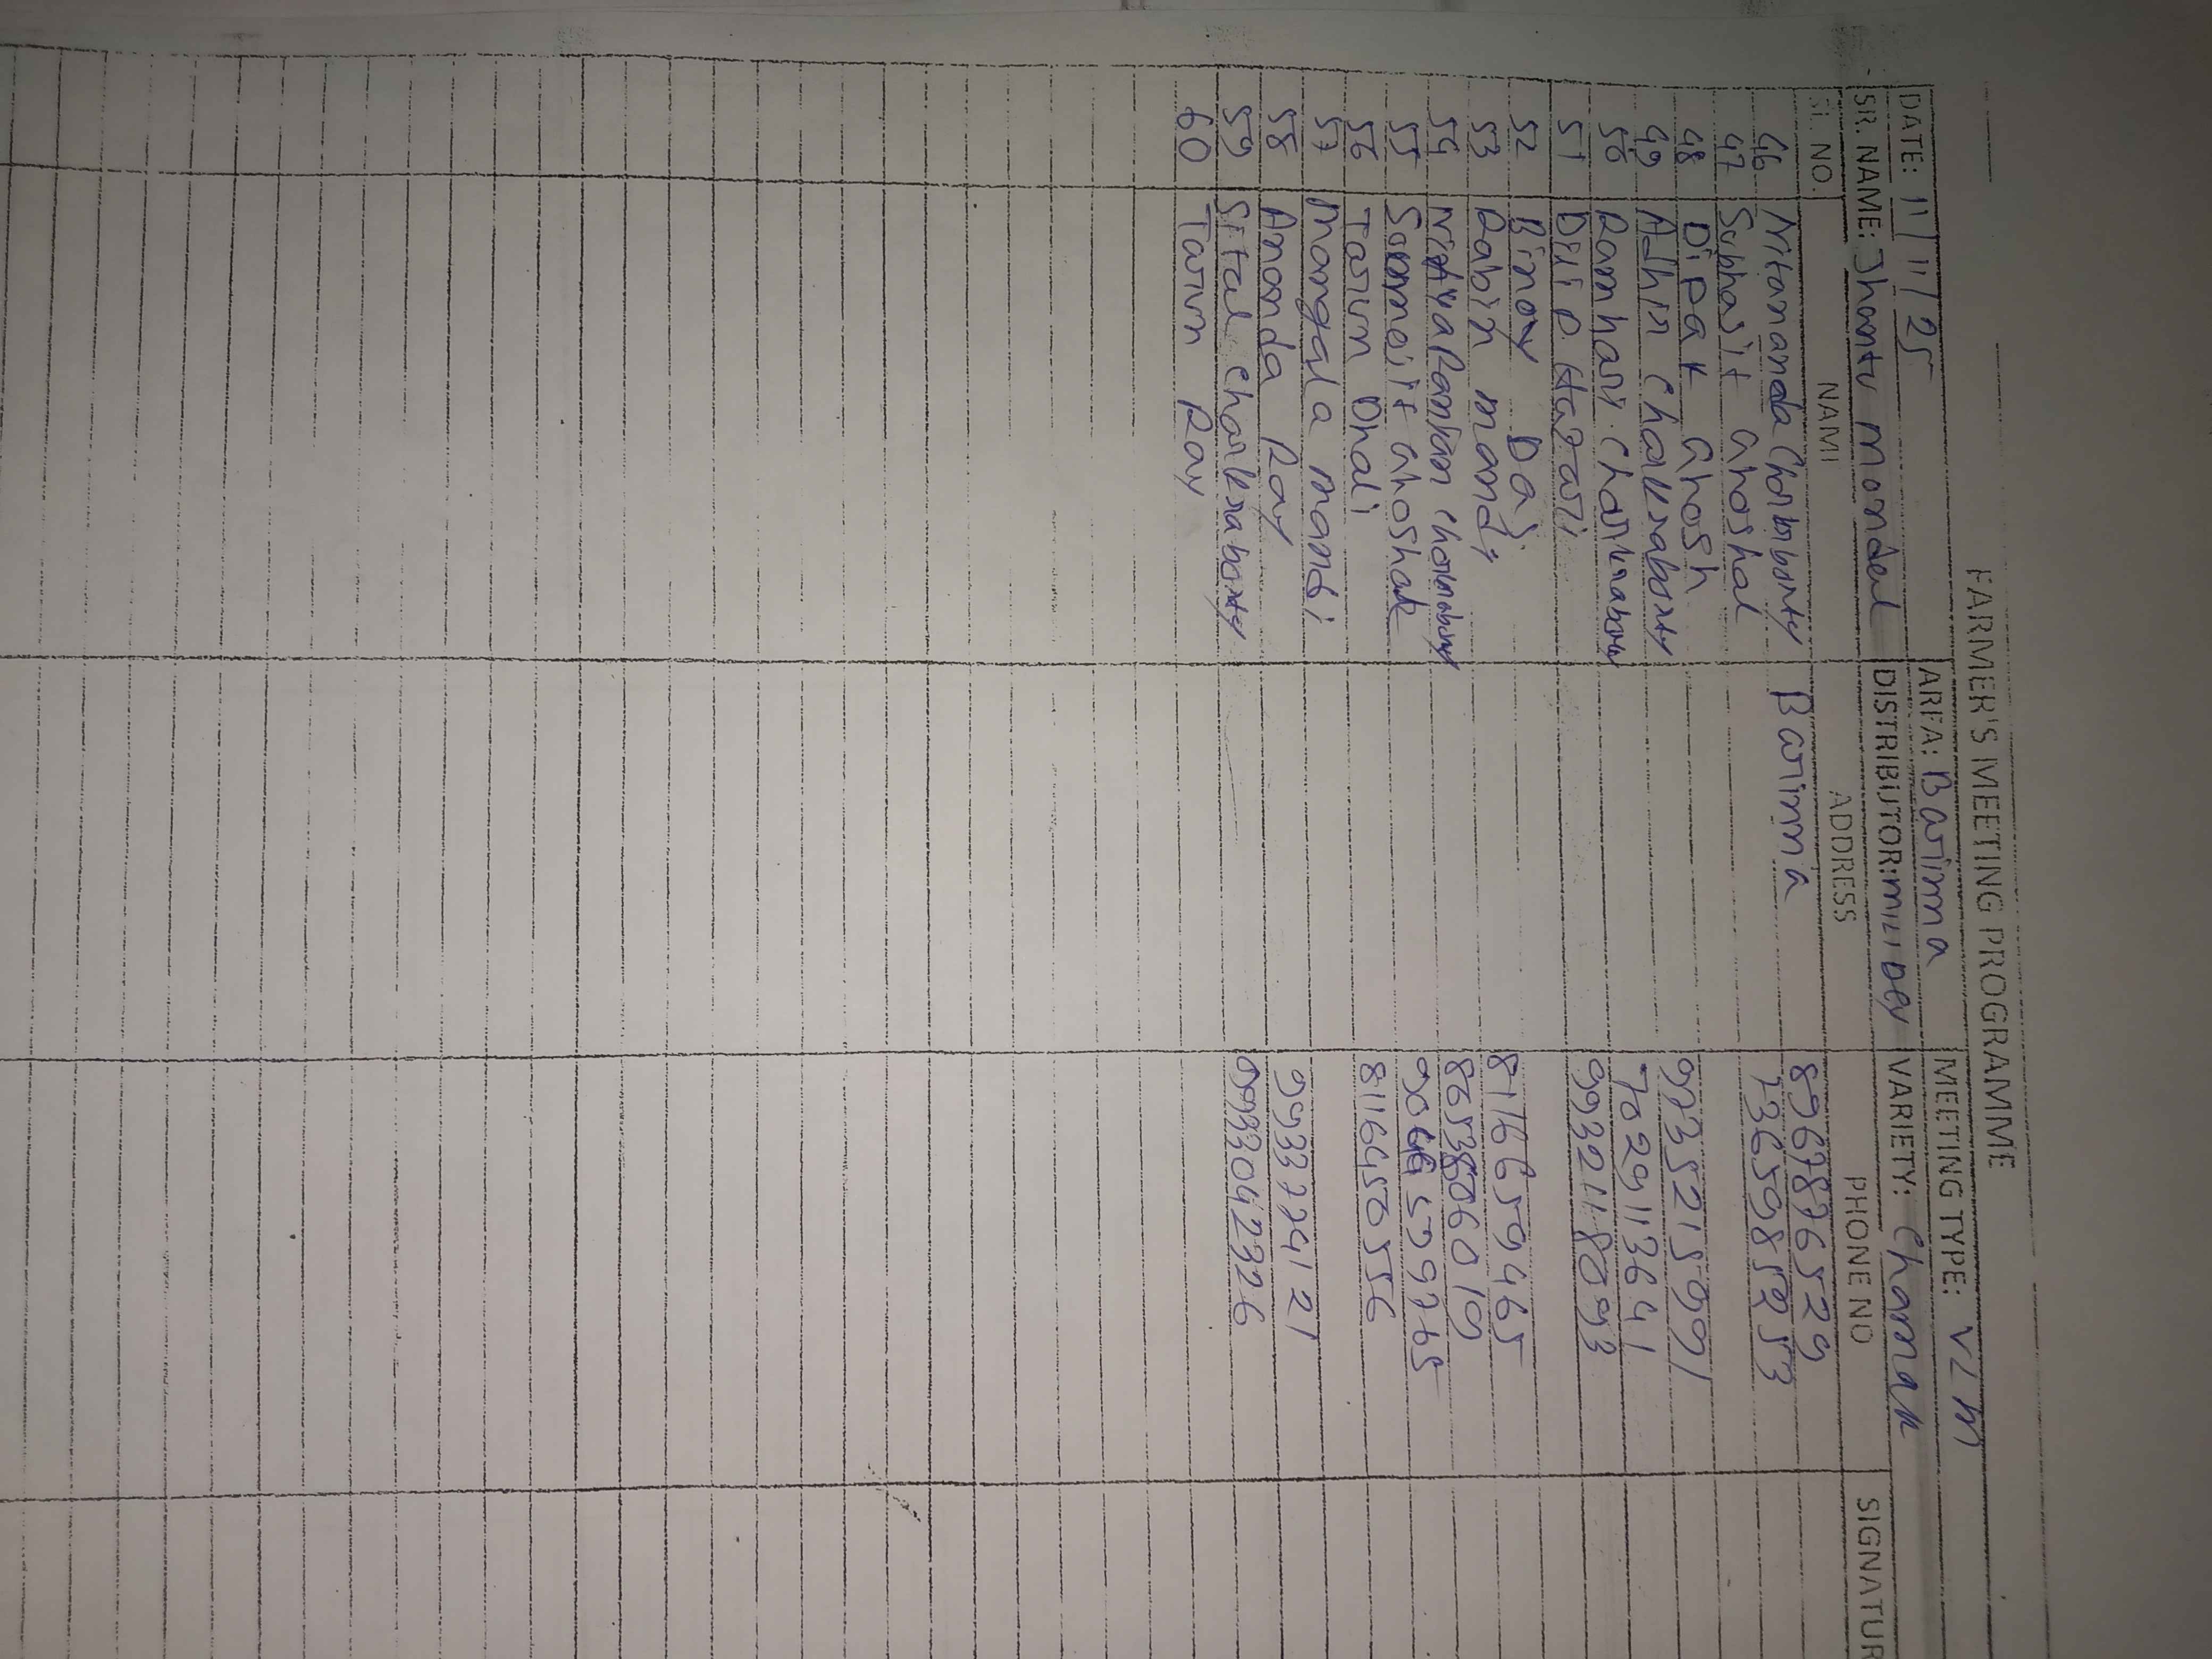 FARMER'S MEETING PROGRAMME
DATE: 11/11/25 AREA: Barima MEETING TYPE: VLM
SR. NAME: Jhantu Mondal DISTRIBUTOR: Mili Dey VARIETY: Chaman
SL. NO. NAME ADDRESS PHONE NO SIGNATUR
46 Nitananda Chakraborty Barima 8967876529
47 Subhasit Ghoshal
48 Dipak Ghosh
49 Adhir Chakraborty 9735215991
50 Ramhari Chakraborty 7029113641
51 Dilip Hazari 9932118093
52 Binoy Das
53 Rabin mandi 8116659465
54 8653806019
55 Ghoshal
56 Tarun Dhali 8116450556
57 Mangala mandi
58 Ananda Ray 9933774121
59 Sital Chakraborty 9933042326
60 Tarun Ray